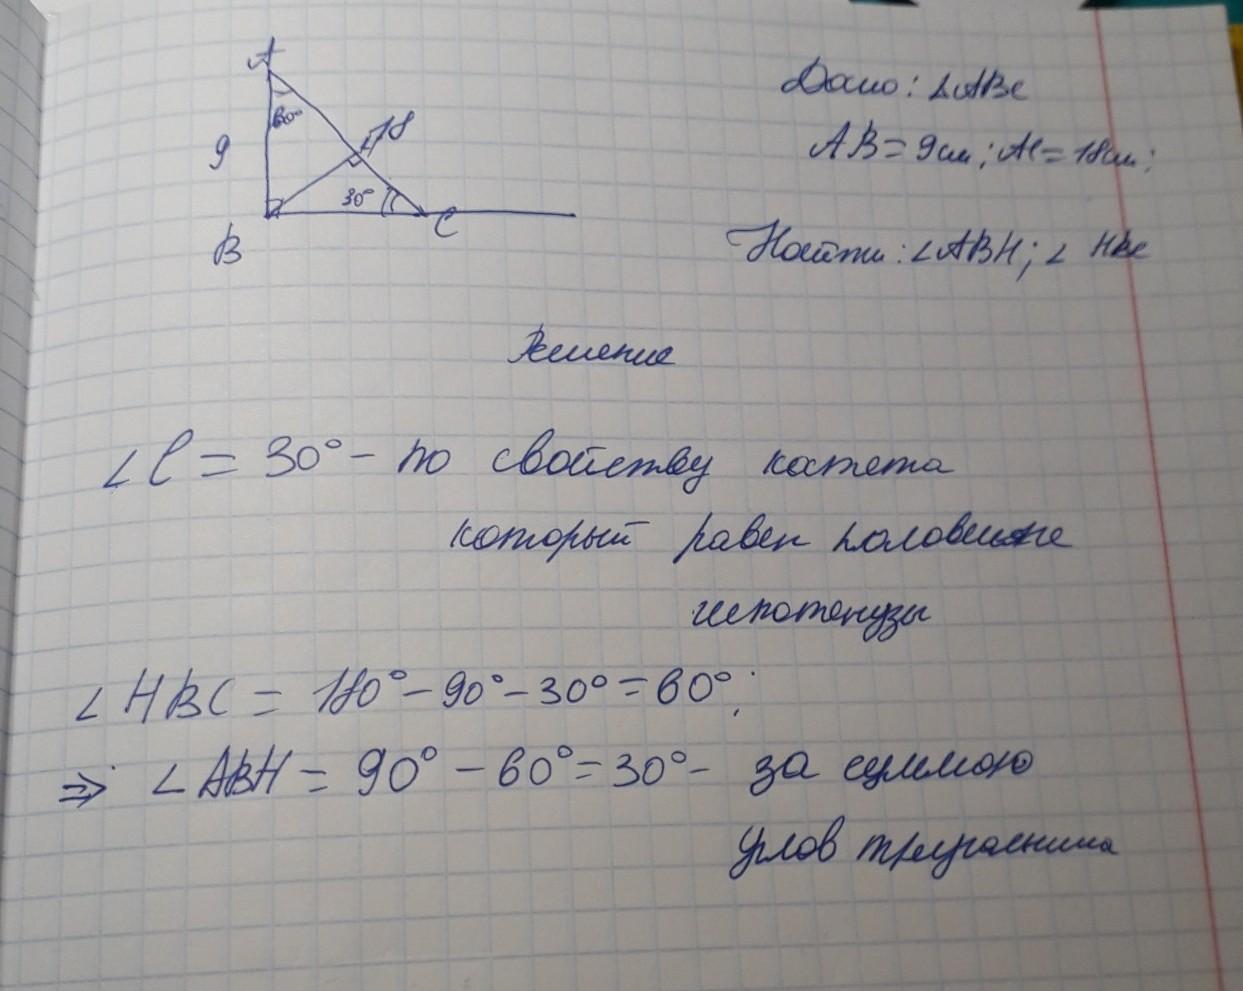 A
60°
18
9
30°
B
C
Дано: ∠ABC
AB = 9см; AC = 18см;
Найти: ∠ABH; ∠ HBC
Решение
∠C = 30° - по свойству катета
который равен половине
гипотенузы
∠HBC = 180° - 90° - 30° = 60°;
⇒ ∠ABH = 90° - 60° = 30° - за суммою
углов треугольника